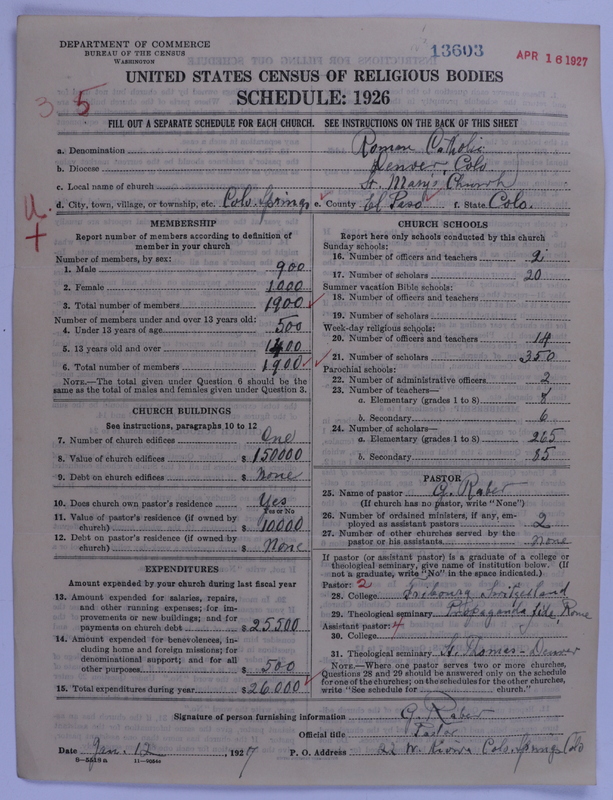 DEPARTMENT OF COMMERCE
BUREAU OF THE CENSUS
WASHINGTON
13603
APR 16 1927
UNITED STATES CENSUS OF RELIGIOUS BODIES
SCHEDULE: 1926
3 5
FILL OUT A SEPARATE SCHEDULE FOR EACH CHURCH. SEE INSTRUCTIONS ON THE BACK OF THIS SHEET
a. Denomination Roman Catholic
b. Diocese Denver, Colo
c. Local name of church St. Marys Church
d. City, town, village, or township, etc. Colo. Springs e. County El Paso f. State Colo.
U.
+
MEMBERSHIP
Report number of members according to definition of member in your church
Number of members, by sex:
1. Male 900
2. Female 1000
3. Total number of members 1900
Number of members under and over 13 years old:
4. Under 13 years of age 500
5. 13 years old and over 1400
6. Total number of members 1900
NOTE.—The total given under Question 6 should be the same as the total of males and females given under Question 3.
CHURCH BUILDINGS
See instructions, paragraphs 10 to 12
7. Number of church edifices One
8. Value of church edifices $ 150000
9. Debt on church edifices $ None
10. Does church own pastor's residence Yes
Yes or No
11. Value of pastor's residence (if owned by church) $ 10000
12. Debt on pastor's residence (if owned by church) $ None
EXPENDITURES
Amount expended by your church during last fiscal year
13. Amount expended for salaries, repairs, and other running expenses; for improvements or new buildings; and for payments on church debt $ 25,500
14. Amount expended for benevolences, including home and foreign missions; for denominational support; and for all other purposes $ 500
15. Total expenditures during year $ 26.000
CHURCH SCHOOLS
Report here only schools conducted by this church
Sunday schools:
16. Number of officers and teachers 2
17. Number of scholars 20
Summer vacation Bible schools:
18. Number of officers and teachers
19. Number of scholars
Week-day religious schools:
20. Number of officers and teachers 14
21. Number of scholars 350
Parochial schools:
22. Number of administrative officers 2
23. Number of teachers—
a. Elementary (grades 1 to 8) 8
b. Secondary 6
24. Number of scholars—
a. Elementary (grades 1 to 8) 265
b. Secondary 85
PASTOR
25. Name of pastor G. Raber
(If church has no pastor, write "None")
26. Number of ordained ministers, if any, employed as assistant pastors 2
27. Number of other churches served by the pastor or his assistants None
If pastor (or assistant pastor) is a graduate of a college or theological seminary, give name of institution below. (If not a graduate, write "No" in the space indicated.)
Pastor: 2
28. College Fribourg Switzerland
29. Theological seminary Propaganda fide, Rome
Assistant pastor: 4
30. College
31. Theological seminary St. Thomas - Denver
NOTE.—Where one pastor serves two or more churches, Questions 28 and 29 should be answered only on the schedule for one of the churches; on the schedules for the other churches, write "See schedule for church."
Signature of person furnishing information G. Raber
Official title Pastor
Date Jan. 12, 1927 P. O. Address 22 W. Kiowa Colo. Springs Colo
8-5519a 11-9054a